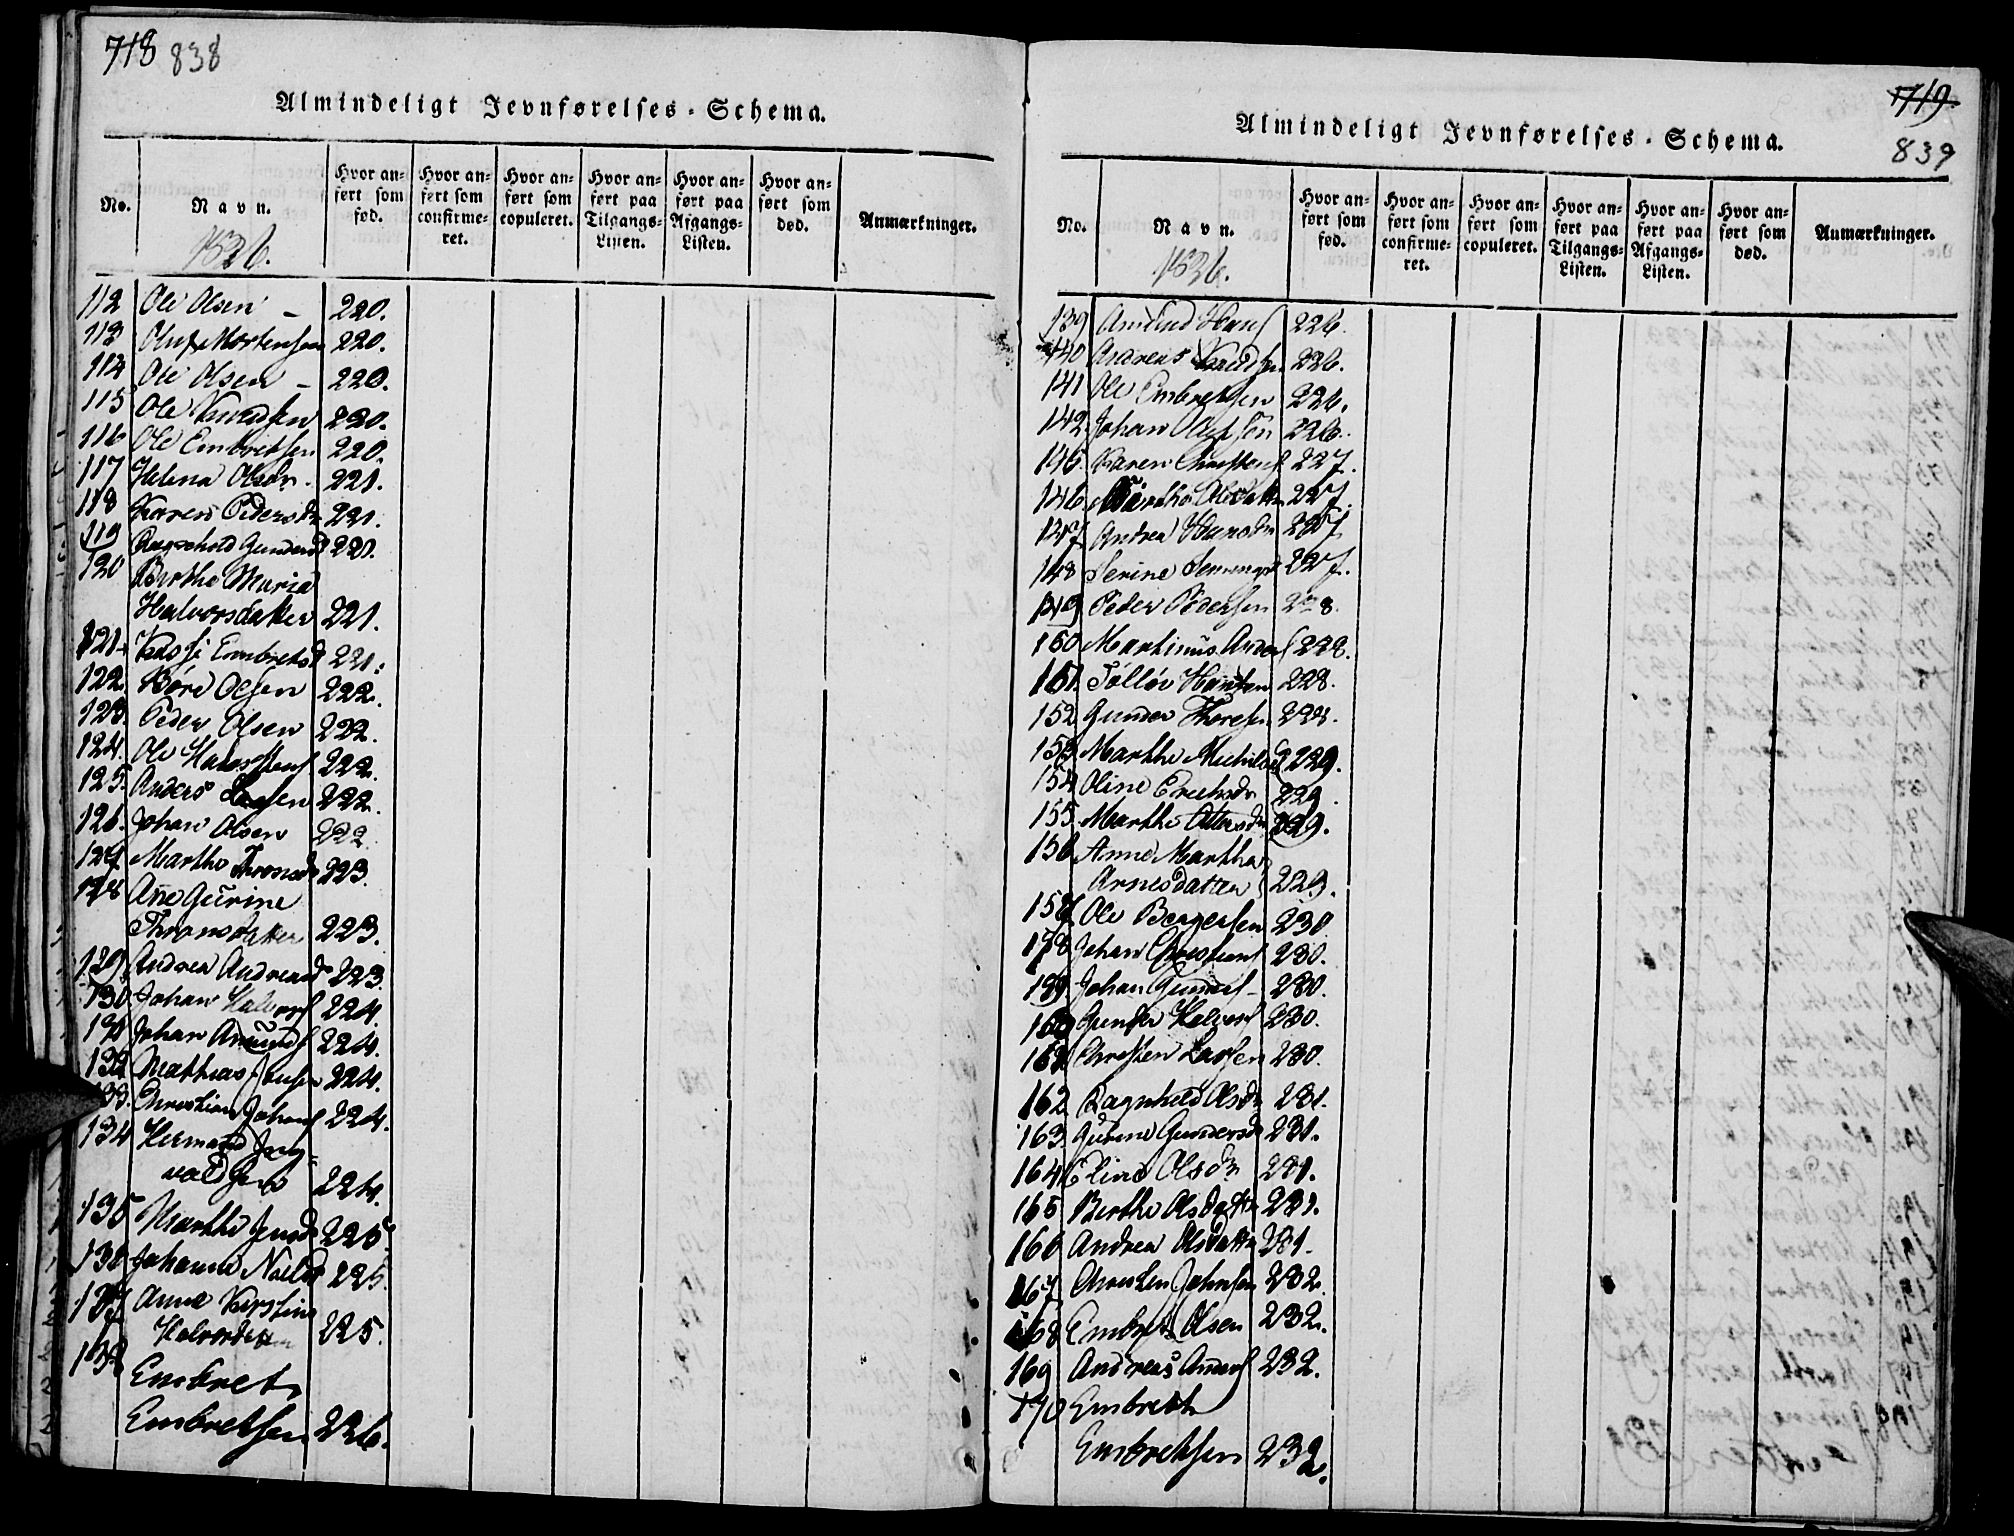 718 838
Almindeligt Jevnførelses-Schema.
No.
Navn.
1826.
Hvor anført som fød.
Hvor anført som confirmeret.
Hvor anført som copuleret.
Hvor anført paa Tilgangs-Listen.
Hvor anført paa Afgangs-Listen.
Hvor anført som død.
Anmærkninger.
112 Ole Olsen - 220.
113 Oluf Mortensen 220.
114 Ole Olsen - 220.
115 Ole Knudsen 220.
116 Ole Embretsen 220.
117 Helena Olsdr. 221.
118 Karen Pedersdr 221.
119 Ragnhold Gundersd 221.
120 Berthe Maria
Halvorsdatter 221.
121 Embretsd 221.
122 Børe Olsen 222.
123. Peder Olsen 222.
124. Ole Halvorsen 222.
125. Anders Larsen 222.
126. Johan Olsen 222
127 Marthe Thronsdr 223.
128 Ane Gurine
Thronsdatter 223.
129 Andrea Andreasd 223.
130. Johan Halvors 224.
131 Johan Amunds 224.
132 Mathias Jensen 224.
133. Christian Johans 224.
134 Hermand Ing-
valdsen 224.
135 Marthe Jensdr 225.
136 Johanne Nielsd 225.
137 Anne Kirstine
Halvorsdatter 225.
138 Embret
Embretsen 226.
719.
839
Almindeligt Jevnførelses-Schema.
No.
Navn.
1826.
Hvor anført som fød.
Hvor anført som confirmeret.
Hvor anført som copuleret.
Hvor anført paa Tilgangs-Listen.
Hvor anført paa Afgangs-Listen.
Hvor anført som død.
Anmærkninger.
139 Amund Hans 226.
140 Andreas Knudsen 226.
141 Ole Embretsen 226.
142. Johan Olufsen 226.
145. Karen Christens 227.
146. Marthe Olsdatter 227.
147 Andrea Hansdr 227
148 Serine 227.
149 Peder Pedersen 228.
150 Martinus Anders 228.
151. Tollov Hansen 228.
152 Gunder Thoresen 228.
153 Marthe Michelsd 229.
154 Oline Erichsdr 229.
155. Marthe Ottersdr 229.
156 Anne Marthe
Arnesdatter 229.
157 Ole Bergersen 230
158 Johan Christians 230.
159. Johan Gunders - 230.
160 Gunder Halvors 230.
161 Christen Larsen 230.
162 Ragnhild Olsdr 231.
163. Gurine Gundersdr 231.
164 Eline Olsdr 231.
165 Berthe Olsdattr 231.
166 Andrea Olsdattr 231.
167 Christen Johnsen 232.
168 Embret Olsen 232.
169 Andreas Anders 232.
170 Embreth
Embretsen 232.